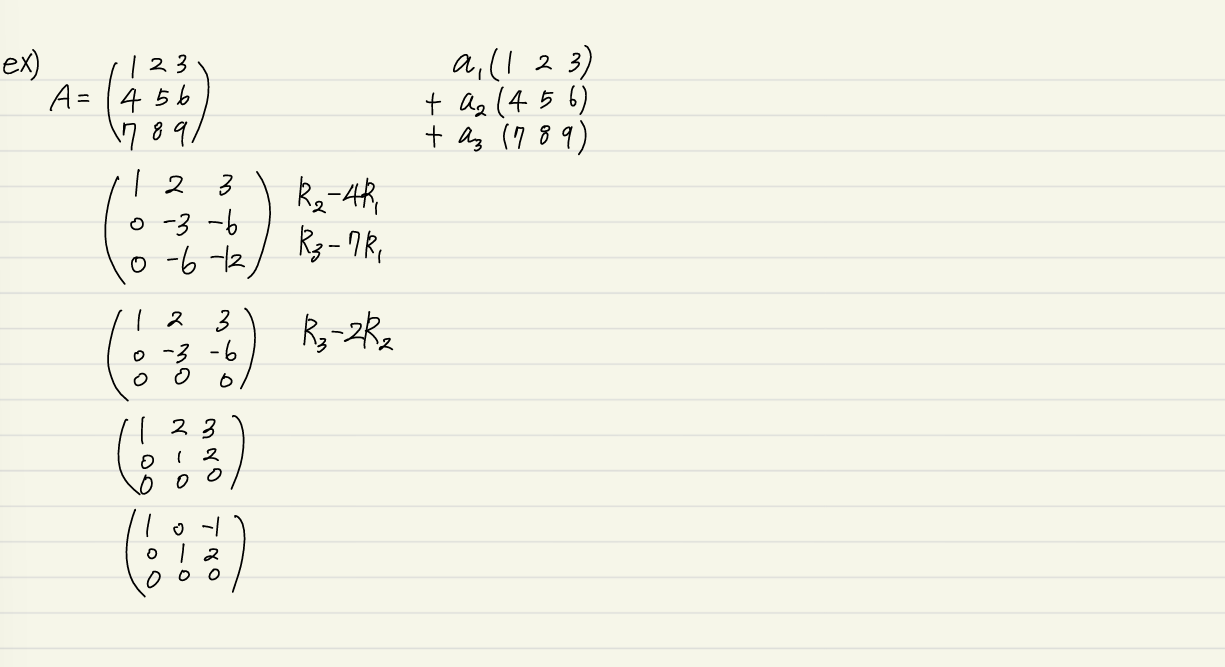 ex)
A = ( 1 2 3
4 5 6
7 8 9 )
a₁ (1 2 3)
+ a₂ (4 5 6)
+ a₃ (7 8 9)
( 1 2 3
0 -3 -6
0 -6 -12 )
R₂-4R₁
R₃-7R₁
( 1 2 3
0 -3 -6
0 0 0 )
R₃-2R₂
( 1 2 3
0 1 2
0 0 0 )
( 1 0 -1
0 1 2
0 0 0 )